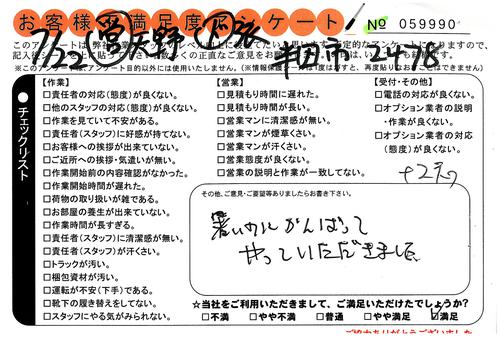 お客様満足度アンケート!
No 059990
7/22 営 矢野
半田市 2478
【作業】
□責任者の対応(態度)が良くない。
□他のスタッフの対応(態度)が良くない。
□作業を見ていて不安がある。
□責任者(スタッフ)に好感が持てない。
□お客様への挨拶が出来ていない。
□ご近所への挨拶・気遣いが無い。
□作業開始前の内容確認がなかった。
□作業開始時間が遅れた。
□荷物の取り扱いが雑である。
□お部屋の養生が出来ていない。
□作業時間が長すぎる。
□責任者(スタッフ)に清潔感が無い。
□責任者(スタッフ)が汗くさい。
□トラックが汚い。
□梱包資材が汚い。
□運転が不安(下手)である。
□靴下の履き替えをしてない。
□スタッフにやる気がみられない。
【営業】
□見積もり時間に遅れた。
□見積もり時間が長い。
□営業マンに清潔感が無い。
□営業マンが煙草くさい。
□営業マンが汗くさい。
□営業態度が良くない。
□営業の説明と作業が一致してない。
【受付・その他】
□電話の対応が良くない。
□オプション業者の説明
・作業が良くない。
□オプション業者の対応
(態度)が良くない。
●チェックリスト
その他、ご意見・ご要望等ありましたらお書き下さい。
暑い中にがんばって
やっていただきました
☆当社をご利用いただきまして、ご満足いただけたでしょうか?
□不満 □やや不満 □普通 □やや満足 ☑満足
ご協力ありがとうございました